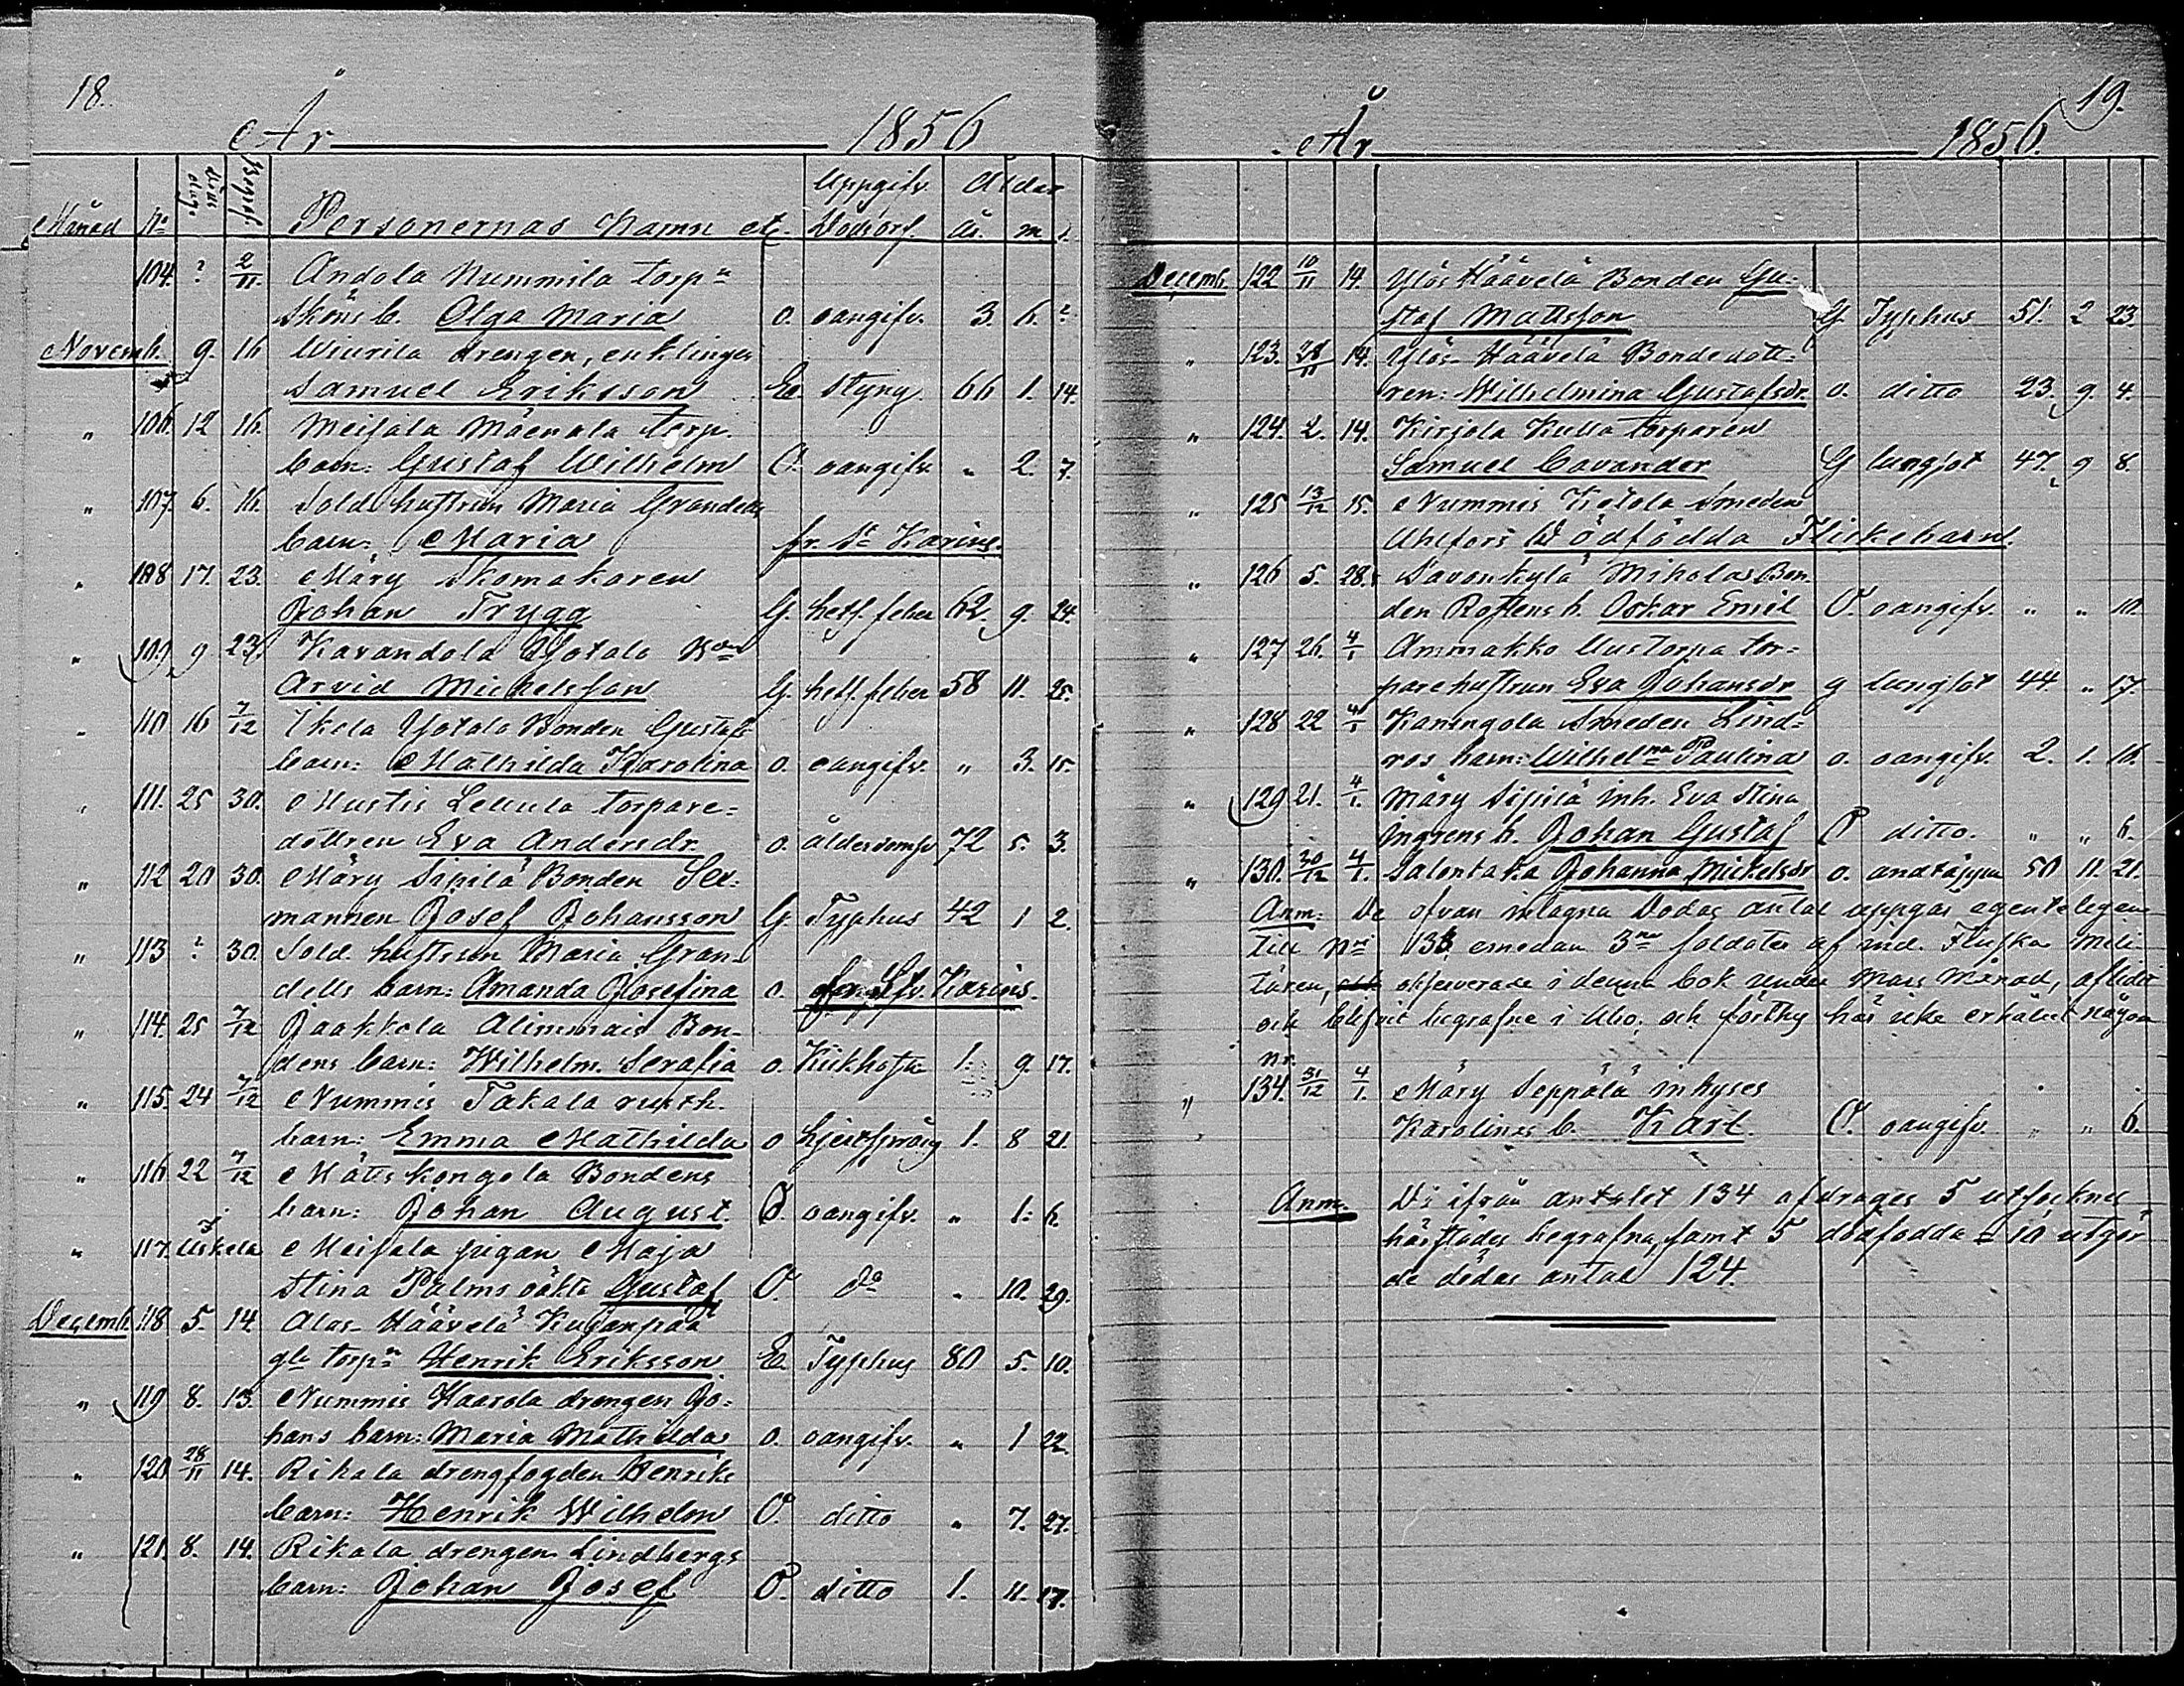 18.
År 1856
Månad No döde dag Begrafn. Personernas Namn etc. Uppgifv. Dödsors. Ålder år. m. d.
104. ? 2/11. Andola Nummila torp.n
Sköns b. Olga Maria o. oangifv. 3. 6. ?
Novemb. 9. 16 Wiurila drengen, enklingen
Samuel Eriksson E. styng 66 1. 14.
" 106. 12 16. Meisala Mäenala torp.
barn: Gustaf Wilhelm O. oangifv. " 2. 7.
" 107. 6. 16. Sold. hustrun Maria Grandells
barn: Maria fr. St Karins.
" 108 17. 23. Märy Skomakaren
Johan Trygg G. het. feber 62. 9. 24.
" 109 9 23 Karandola Yotala Bn
Arvid Michelsson G. het. feber 58 11. 25.
" 110 16 7/12 Ikela Yotala Bonden Gustafs
barn: Mathilda Karolina o. oangifv. " 3. 15.
" 111. 25 30. Mustis Lellula torpare-
dottren Eva Andersdr. o. ålderdomsv 72 5. 3.
" 112 20 30. Märy Sipilä Bonden Sex-
mannen Josef Johansson G. Typhus 42 1 2.
" 113 ? 30. Sold. hustrun Maria Gran-
dells barn: Amanda Josefina o. fr. St. Karins.
" 114. 25 7/12 Jaakkola Alimmais Bon-
dens barn: Wilhelm. Serafia o. Kikhosta 1. 9. 17.
" 115. 24 7/12 Nummis Takala rusth.
barn: Emma Mathilda o hjertsprång 1. 8 21.
" 116 22 7/12 Mätis kongola Bondens
barn: Johan August. O. oangifv. " 1. 6.
" 117. i Uskela Meisala pigan Maja
Stina Palms oäkta Gustaf O. do " 10. 29.
Decemb. 118 5. 14. Alas-Häävelä Kujanpää
gla torp.n Henrik Eriksson E. Typhus 80 5. 10.
" 119 8. 13. Nummis Haarola drengen Jo-
hans barn: Maria Mathilda o. oangifv. " 1 22.
" 120 28/11 14. Rikala drengfogden Henriks
barn: Henrik Wilhelm O. ditto " 7. 27.
" 121. 8. 14. Rikala drengen Lindbergs
barn: Johan Josef O. ditto 1. 11. 17.
19.
År 1856.
Decemb. 122 10/11 14. Ylös Häävelä Bonden Gu-
staf Mattsson G. Typhus 51. 2 23.
" 123. 28/11 14. Ylös-Häävelä Bondedott-
ren: Wilhelmina Gustafsdr. o. ditto 23. 9. 4.
" 124. 2. 14. Kirjola Kulla torparen
Samuel Cavander G lungsot 47. 9 8.
" 125 13/12 15. Nummis Ketola Smeden
Ahlfors Dödfödda Flickebarn.
" 126 5. 28. Savonkylä Mikolas Bon
den b. Oskar Emil O. oangifv. " " 10.
" 127 26. 4/1 Ammakko Uustorpa tor-
parehustrun Eva Johansdr g lungsot 44. " 17.
" 128 22 4/1 Kaningola Smeden Lind-
ros barn: Wilhelma Paulina o. oangifv. 2. 1. 16.
" 129 21. 4/1. Märy Sipilä Inh. Eva Stina
b. Johan Gustaf O ditto. " " 6.
" 130. 30/12 4/1. Salontaka Johanna Mickelsdr o. andtäppa 50 11. 21.
Anm: De ofvan intagna Dödas antal uppgår egenteligen
till Nri 133, emedan 3ne soldater af ind. Finska Mili
tären, observerade i denna bok under Mars Månad, aflidit
och blifvit begrafne i Åbo, och förthy här icke erhållit någon
nr.
" 134. 31/12 4/1. Märy Seppälä inhyses
Karolinas b. Karl. O. oangifv. " " 6.
Anm. Då ifrån antalet 134 afdrages 5 utsocknes
härstädes begrafna, samt 5 dödfödda = 10 utgör
de dödas antal 124.